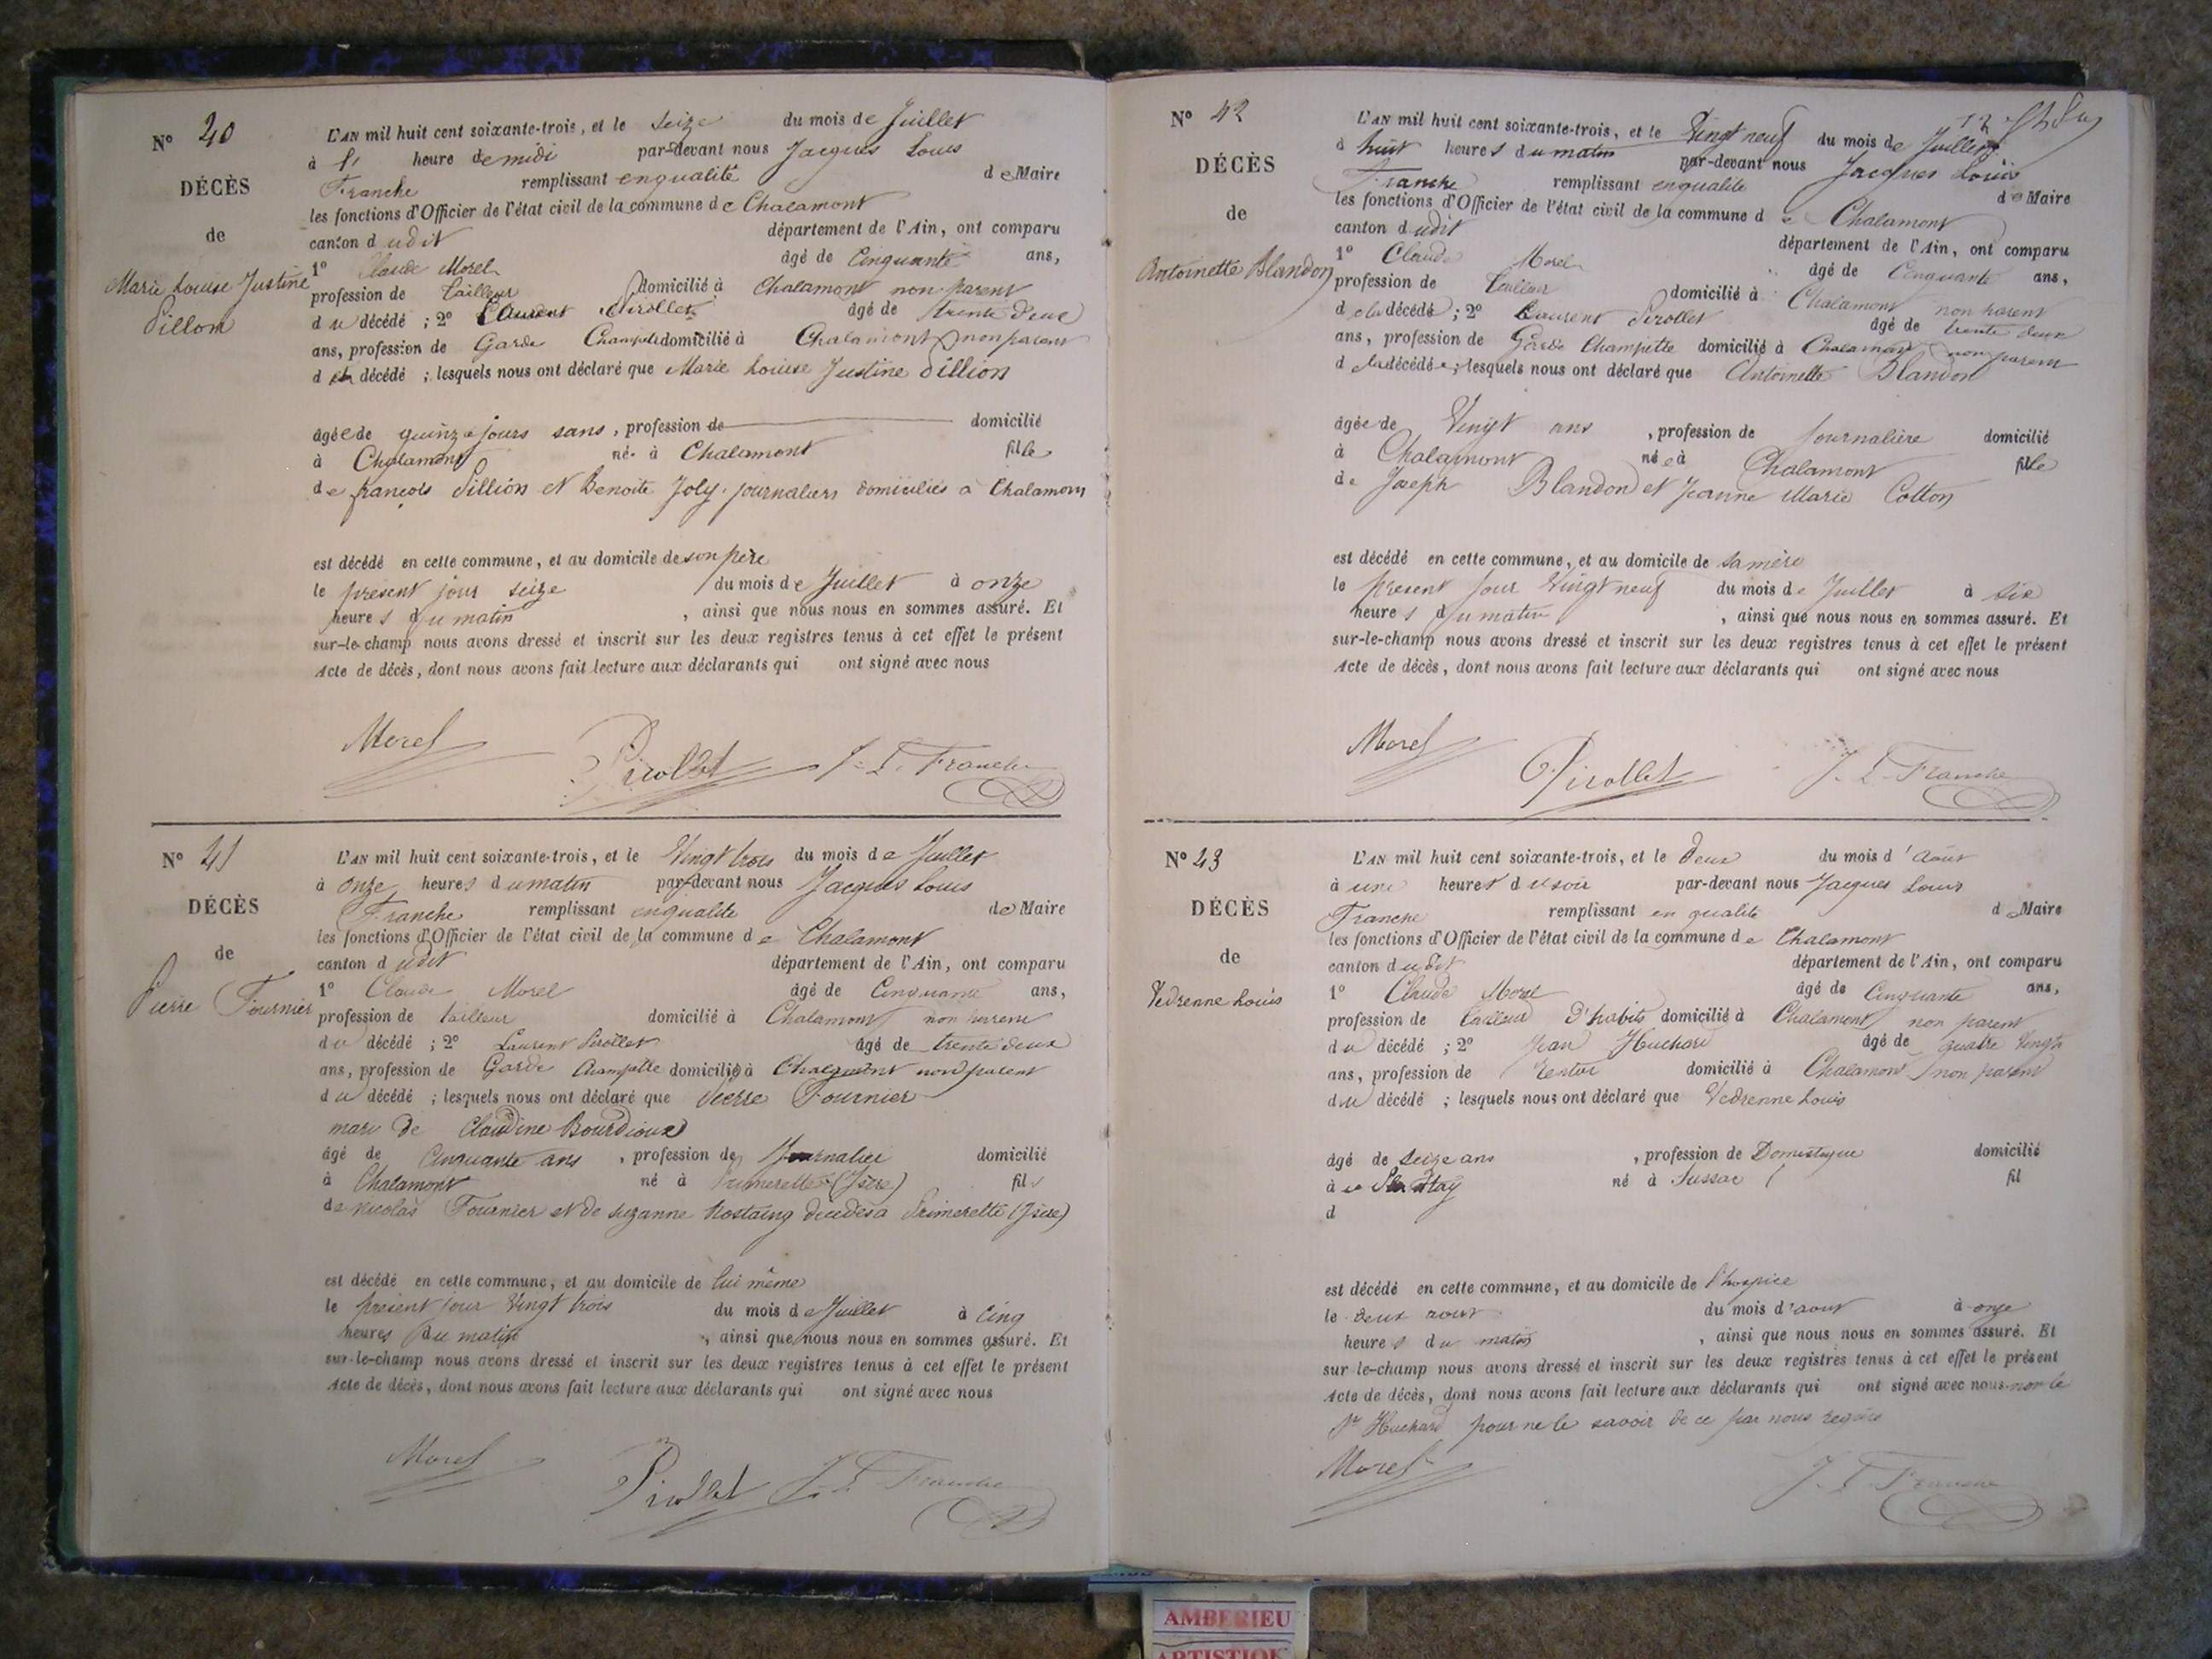 N° 40
DÉCÈS
de
Marie Louise Justine
Dillon
L'AN mil huit cent soixante-trois, et le seize du mois de Juillet
à heure de midi par-devant nous Jacques Louis
Franche remplissant en qualité de Maire
les fonctions d'Officier de l'état civil de la commune de Chalamont
canton dudit département de l'Ain, ont comparu
1° Claude Morel âgé de Cinquante ans,
profession de tailleur domicilié à Chalamont non parent
du décédé ; 2° Laurent Pirollet âgé de trente deux
ans, profession de Garde Champetre domicilié à Chalamont non parent
d décédé ; lesquels nous ont déclaré que Marie Louise Justine Dillion
âgée de quinze jours sans, profession de domicilié
à Chalamont né à Chalamont fille
de françois Dillion et Benoite Joly journaliers domiciliés à Chalamont
est décédé en cette commune, et au domicile de son père
le present jour seize du mois de Juillet à onze
heures du matin , ainsi que nous nous en sommes assuré. Et
sur-le-champ nous avons dressé et inscrit sur les deux registres tenus à cet effet le présent
Acte de décès, dont nous avons fait lecture aux déclarants qui ont signé avec nous
Morel Pirollet J. L. Franche
N° 41
DÉCÈS
de
Pierre Fournier
L'AN mil huit cent soixante-trois, et le Vingt trois du mois de Juillet
à onze heures du matin par-devant nous Jacques Louis
Franche remplissant en qualité de Maire
les fonctions d'Officier de l'état civil de la commune de Chalamont
canton dudit département de l'Ain, ont comparu
1° Claude Morel âgé de Cinquante ans,
profession de tailleur domicilié à Chalamont non parent
du décédé ; 2° Laurent Pirollet âgé de trente deux
ans, profession de Garde Champetre domicilié à Chalamont non parent
du décédé ; lesquels nous ont déclaré que Pierre Fournier
mari de Claudine Bourdioux
âgé de Cinquante ans , profession de Journalier domicilié
à Chalamont né à Primerette (Isère) fils
de nicolas Fournier et de suzanne Rostaing décédés à Primerette (Isère)
est décédé en cette commune, et au domicile de lui même
le présent jour Vingt trois du mois de Juillet à Cinq
heures du matin , ainsi que nous nous en sommes assuré. Et
sur-le-champ nous avons dressé et inscrit sur les deux registres tenus à cet effet le présent
Acte de décès, dont nous avons fait lecture aux déclarants qui ont signé avec nous
Morel Pirollet J. L. Franche
N° 42
DÉCÈS
de
Antoinette Blandon
L'AN mil huit cent soixante-trois, et le Vingt neuf du mois de Juillet
à huit heures du matin par-devant nous Jacques Louis
Franche remplissant en qualité de Maire
les fonctions d'Officier de l'état civil de la commune de Chalamont
canton dudit département de l'Ain, ont comparu
1° Claude Morel âgé de Cinquante ans,
profession de tailleur domicilié à Chalamont non parent
de la décédé ; 2° Laurent Pirollet âgé de trente deux
ans, profession de Garde Champetre domicilié à Chalamont non parent
de la décédée ; lesquels nous ont déclaré que Antoinette Blandon
âgée de Vingt ans , profession de journalière domicilié
à Chalamont née à Chalamont fille
de Joseph Blandon et Jeanne Marie Cotton
est décédé en cette commune, et au domicile de sa mère
le present jour Vingt neuf du mois de Juillet à six
heures du matin , ainsi que nous nous en sommes assuré. Et
sur-le-champ nous avons dressé et inscrit sur les deux registres tenus à cet effet le présent
Acte de décès, dont nous avons fait lecture aux déclarants qui ont signé avec nous
Morel Pirollet J. L. Franche
N° 43
DÉCÈS
de
Vedrenne Louis
L'AN mil huit cent soixante-trois, et le deux du mois d'Aout
à une heure du soir par-devant nous Jacques Louis
Franche remplissant en qualité de Maire
les fonctions d'Officier de l'état civil de la commune de Chalamont
canton dudit département de l'Ain, ont comparu
1° Claude Morel âgé de Cinquante ans,
profession de tailleur d'habits domicilié à Chalamont non parent
du décédé ; 2° Jean Huchard âgé de quatre vingts
ans, profession de rentier domicilié à Chalamont non parent
du décédé ; lesquels nous ont déclaré que Vedrenne Louis
âgé de seize ans , profession de Domestique domicilié
à né à Sussac fil
d
est décédé en cette commune, et au domicile de l'hospice
le deux aout du mois d'aout à onze
heures du matin , ainsi que nous nous en sommes assuré. Et
sur-le-champ nous avons dressé et inscrit sur les deux registres tenus à cet effet le présent
Acte de décès, dont nous avons fait lecture aux déclarants qui ont signé avec nous non le
Sr Huchard pour ne le savoir de ce par nous requis
Morel J. L. Franche
AMBERIEU
ARTISTIQUE